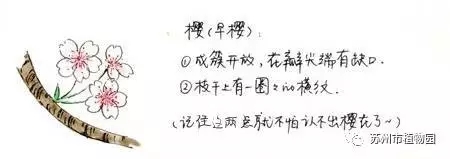 樱(早樱):
①成簇开放,花瓣尖端有缺口.
②枝干上有一圈々的横纹.
(记住这两点就不怕认不出樱花了~)
苏州市植物园